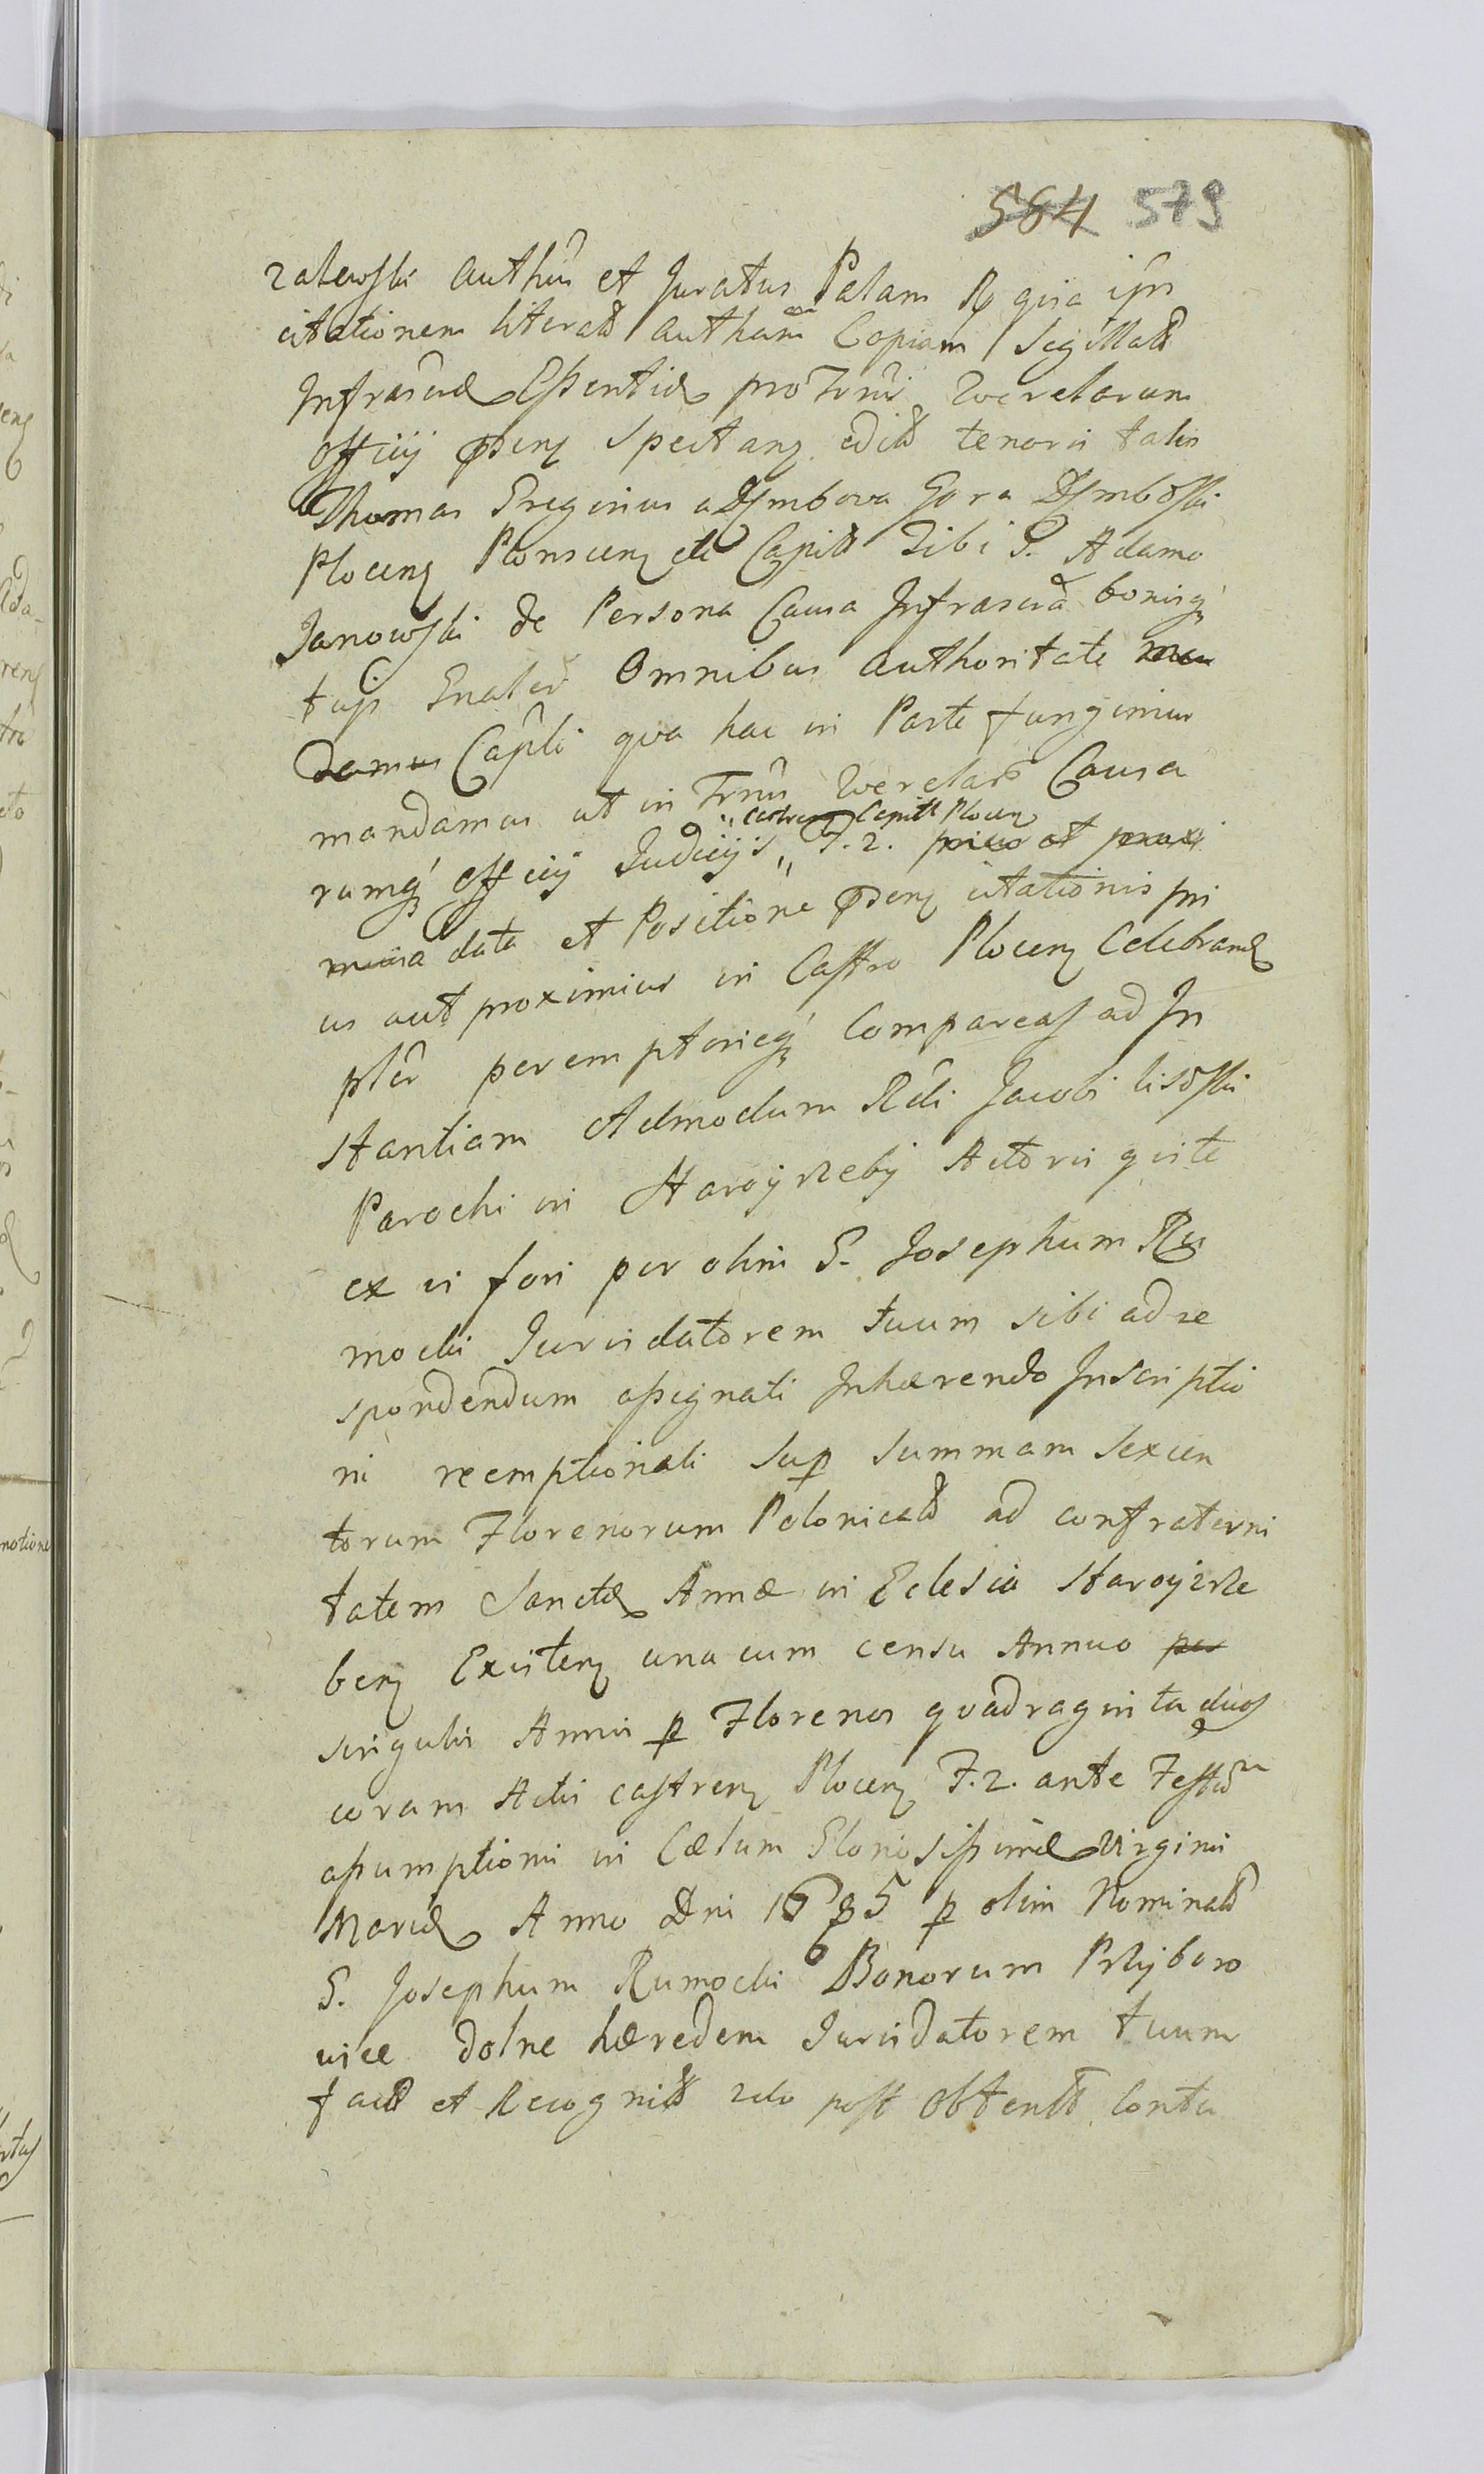 564 579
zalewski Authñ et Juratus Palam Rg quia ipse
citationem literat authãm Copiam Sigillat
Infrascrã Essentiæ pro Trnis Querelarum
officij pñtis Spectanz edit tenoris talis
Thomas Greginius a Dymbova Gora Dymbowski
Plocenz Plonscenz etc Capits Tibi G. Adamo
Janowski de Persona Causa Infrascra bonisq́
tuis Gnaliter Omnibus authoritate mea
damus Capñli qva hac in Parte fungimur
mandamus ut in Trnis Querelar̃ Causa
castren Capitl Plocenz
rumq́ officij Judicijs F. 2. proxi
data et Positione pñtis citationis pri
us aut proximius in Castro Plocenz Celebrand
pliter peremptorieq́ Compareas ad In
stantiam Admodum Rdi Jacobi lisowski
Parochi in Staroyzreby Actoris qui te
ex vi fori per olim G. Josephum Ru
mocki Jurisdatorem tuum sibi ad re
spondendum assignati Inhærendo Inscriptio
ni reemptionali sup summam Sexcen
torum Florenorum Polonicalt ad confraterni
tatem Sanctæ Annæ in Eclesia Staroyzre
benz Existenz una cum censu Annuo per
singulis Annis p Florenos qvadraginta duos
coram Actis castrenz Plocenz F. 2. ante Festum
assumptionis in Cælum Gloriosissimæ Virginis
Mariæ Anno Dni 1685 p olim Nominatt
G. Josephum Rumocki Bonorum Przyboro
vice dolne hæredem Jurisdatorem tuum
fact et Recognitt post obtentt Contu